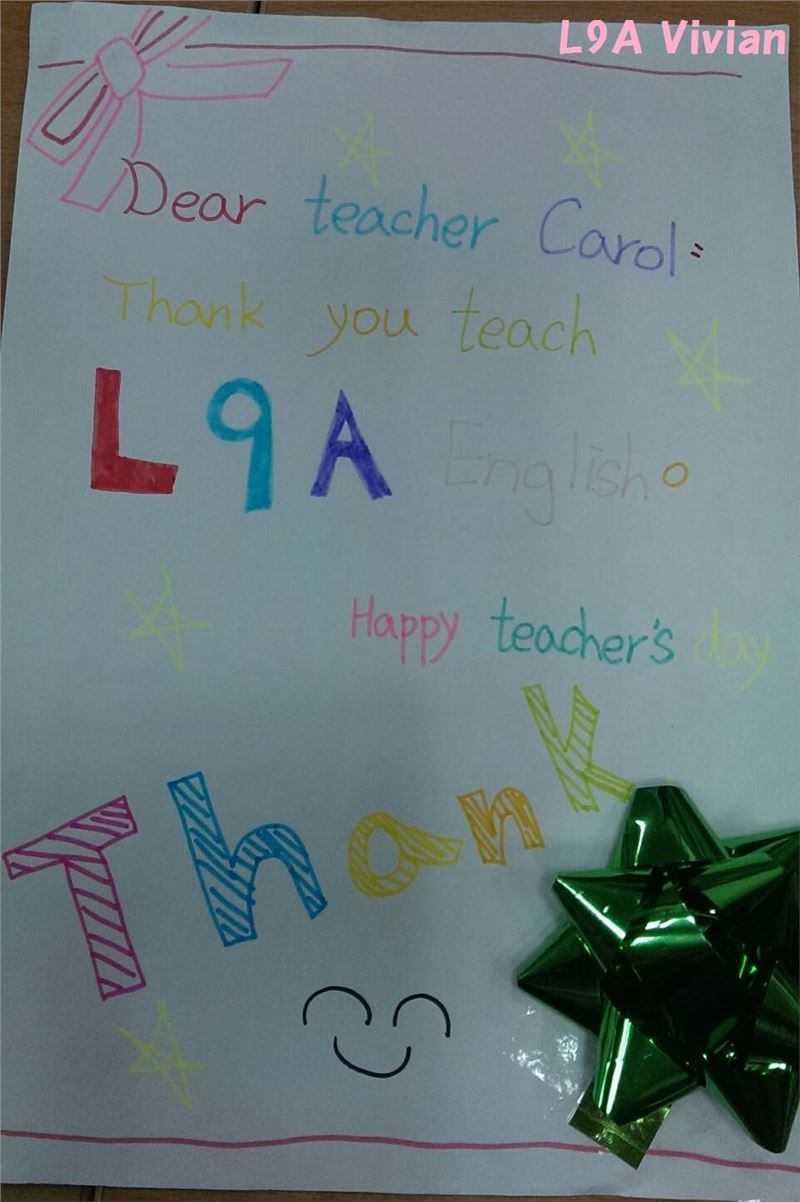 L9A Vivian
Dear teacher Carol:
Thank you teach
L9A English。
Happy teacher's day
Thank